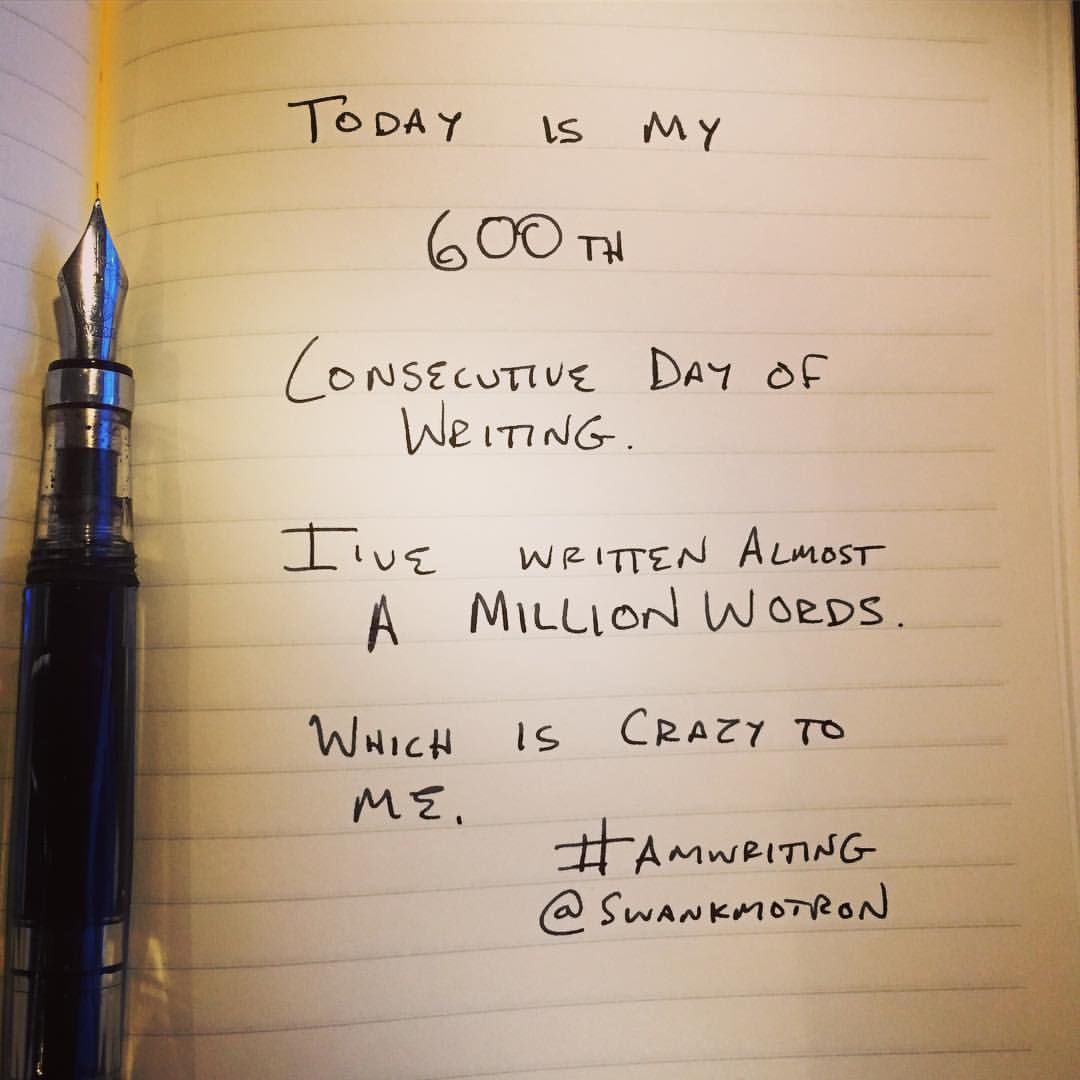 TODAY IS MY
600TH
CONSECUTIVE DAY OF
WRITING.
I'VE WRITTEN ALMOST
A MILLION WORDS.
WHICH IS CRAZY TO
ME.
#AMWRITING
@SWANKMOTRON